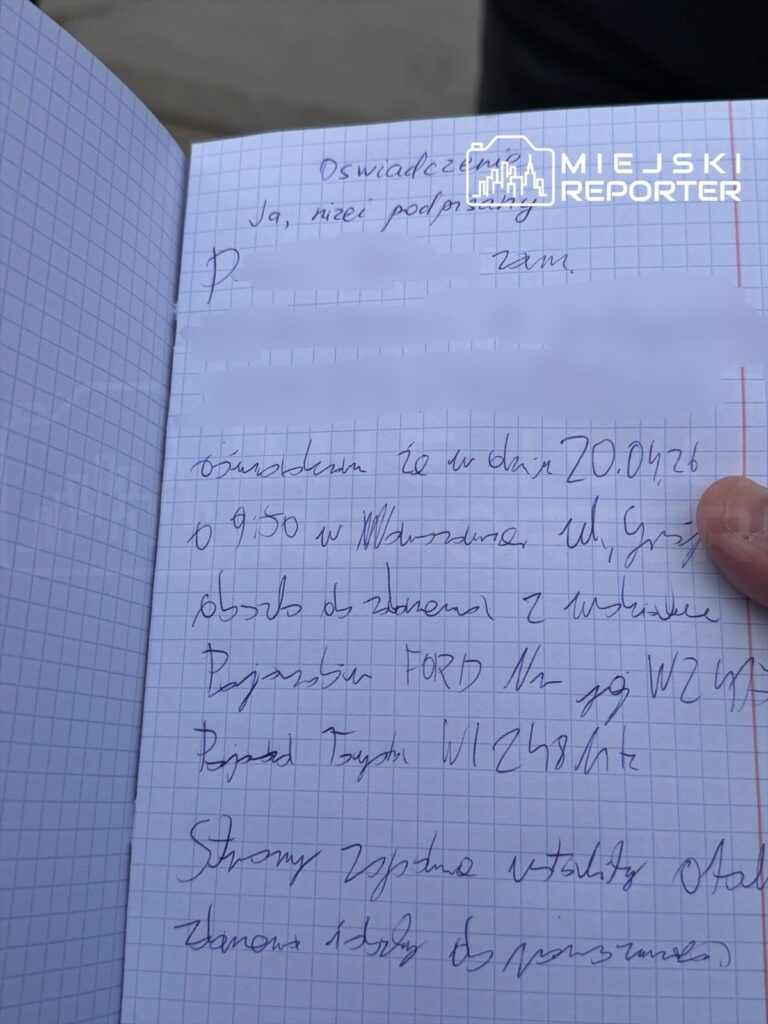 Oświadczenie
MIEJSKI
REPORTER
Ja, niżej podpisany
P. zam.
oświadczam że w dniu 20.04.26
o 9:50 w Warszawie, ul,
doszło do zdarzenia z udziałem
Pojazdów FORD Nr rej WZ
Pojazd Toyota WI 248
Strony zgodnie ustaliły
zdarzenia i